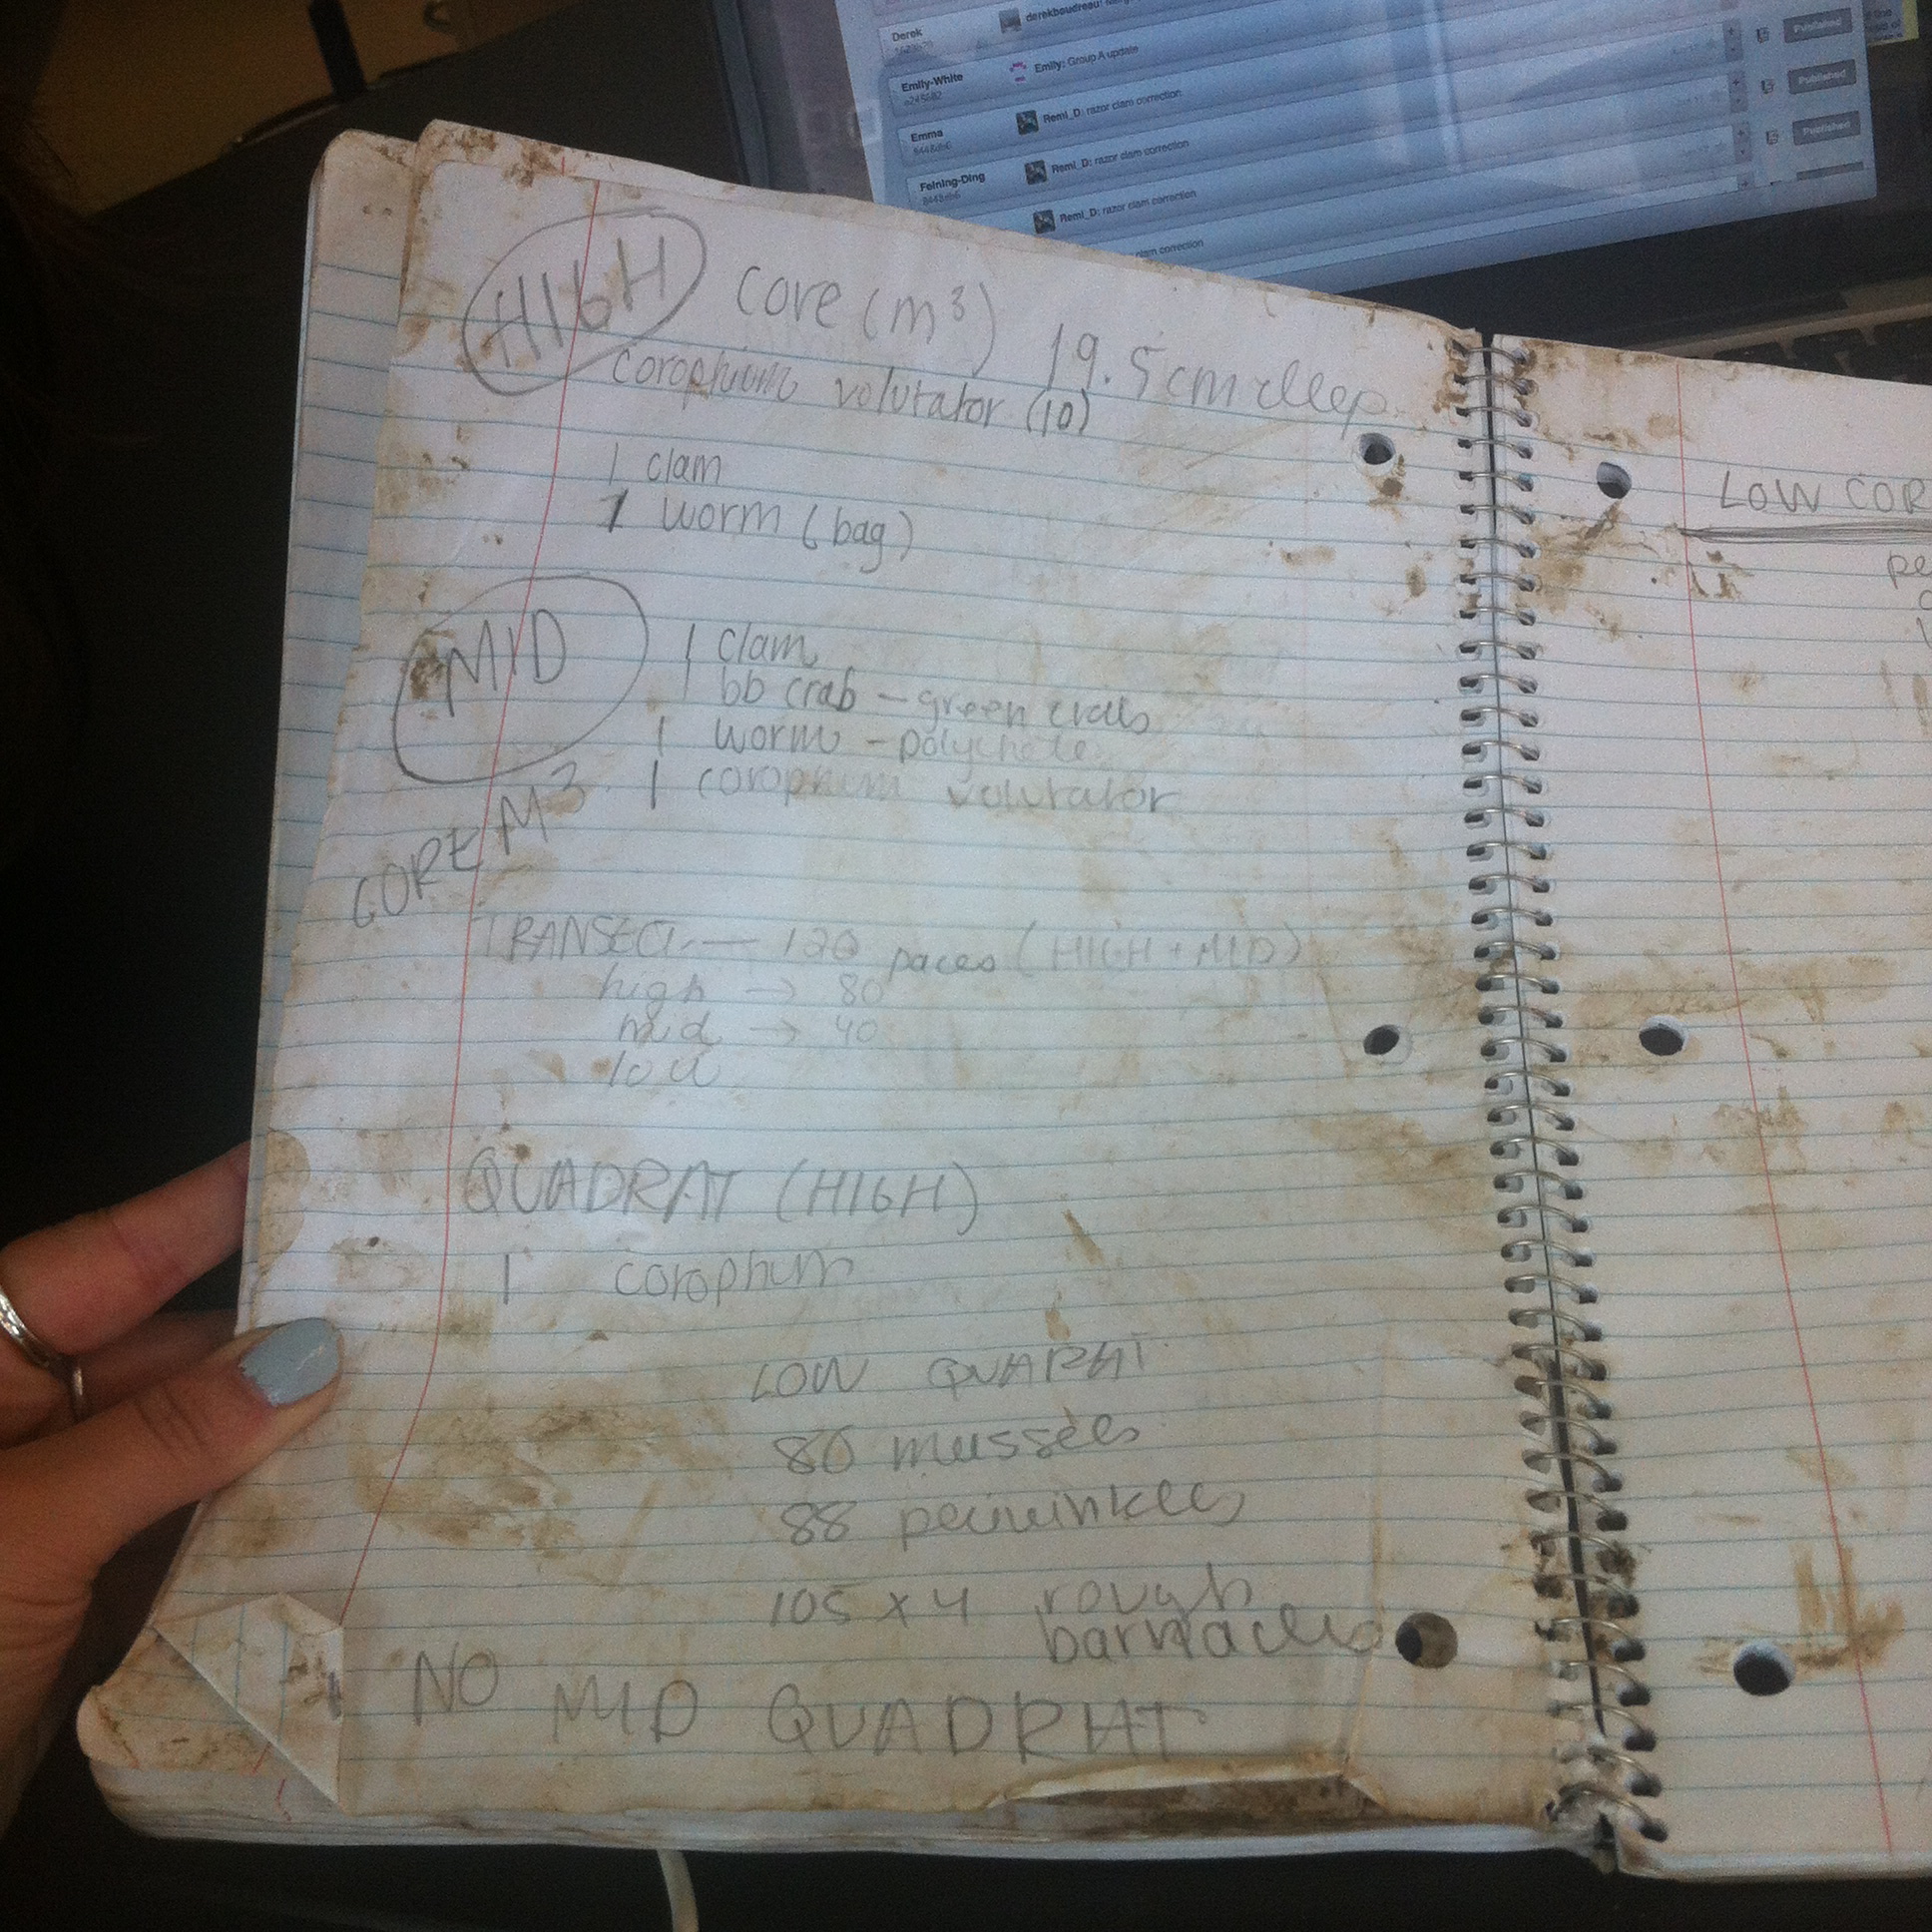 Derek
derekboudreau:
Emily-White
Emily: Group A update
Published
Emma
8448db6
Remi_D: razor clam correction
Published
Feining-Ding
8448db6
Remi_D: razor clam correction
Published
Remi_D: razor clam correction
clam correction
HIGH core (m³) 19.5cm deep.
corophium volutator (10)
1 clam
1 worm (bag)
MID
1 clam
1 bb crab - green crab
1 worm - polychete
1 corophium volutator
CORE M³
TRANSECT — 120 paces (HIGH + MID)
high → 80
mid → 40
low
QUADRAT (HIGH)
1 corophium
LOW QUARAT
80 mussels
88 periwinkles
105 x 4 rough
barnacles
NO MID QUADRAT
LOW COR
pe